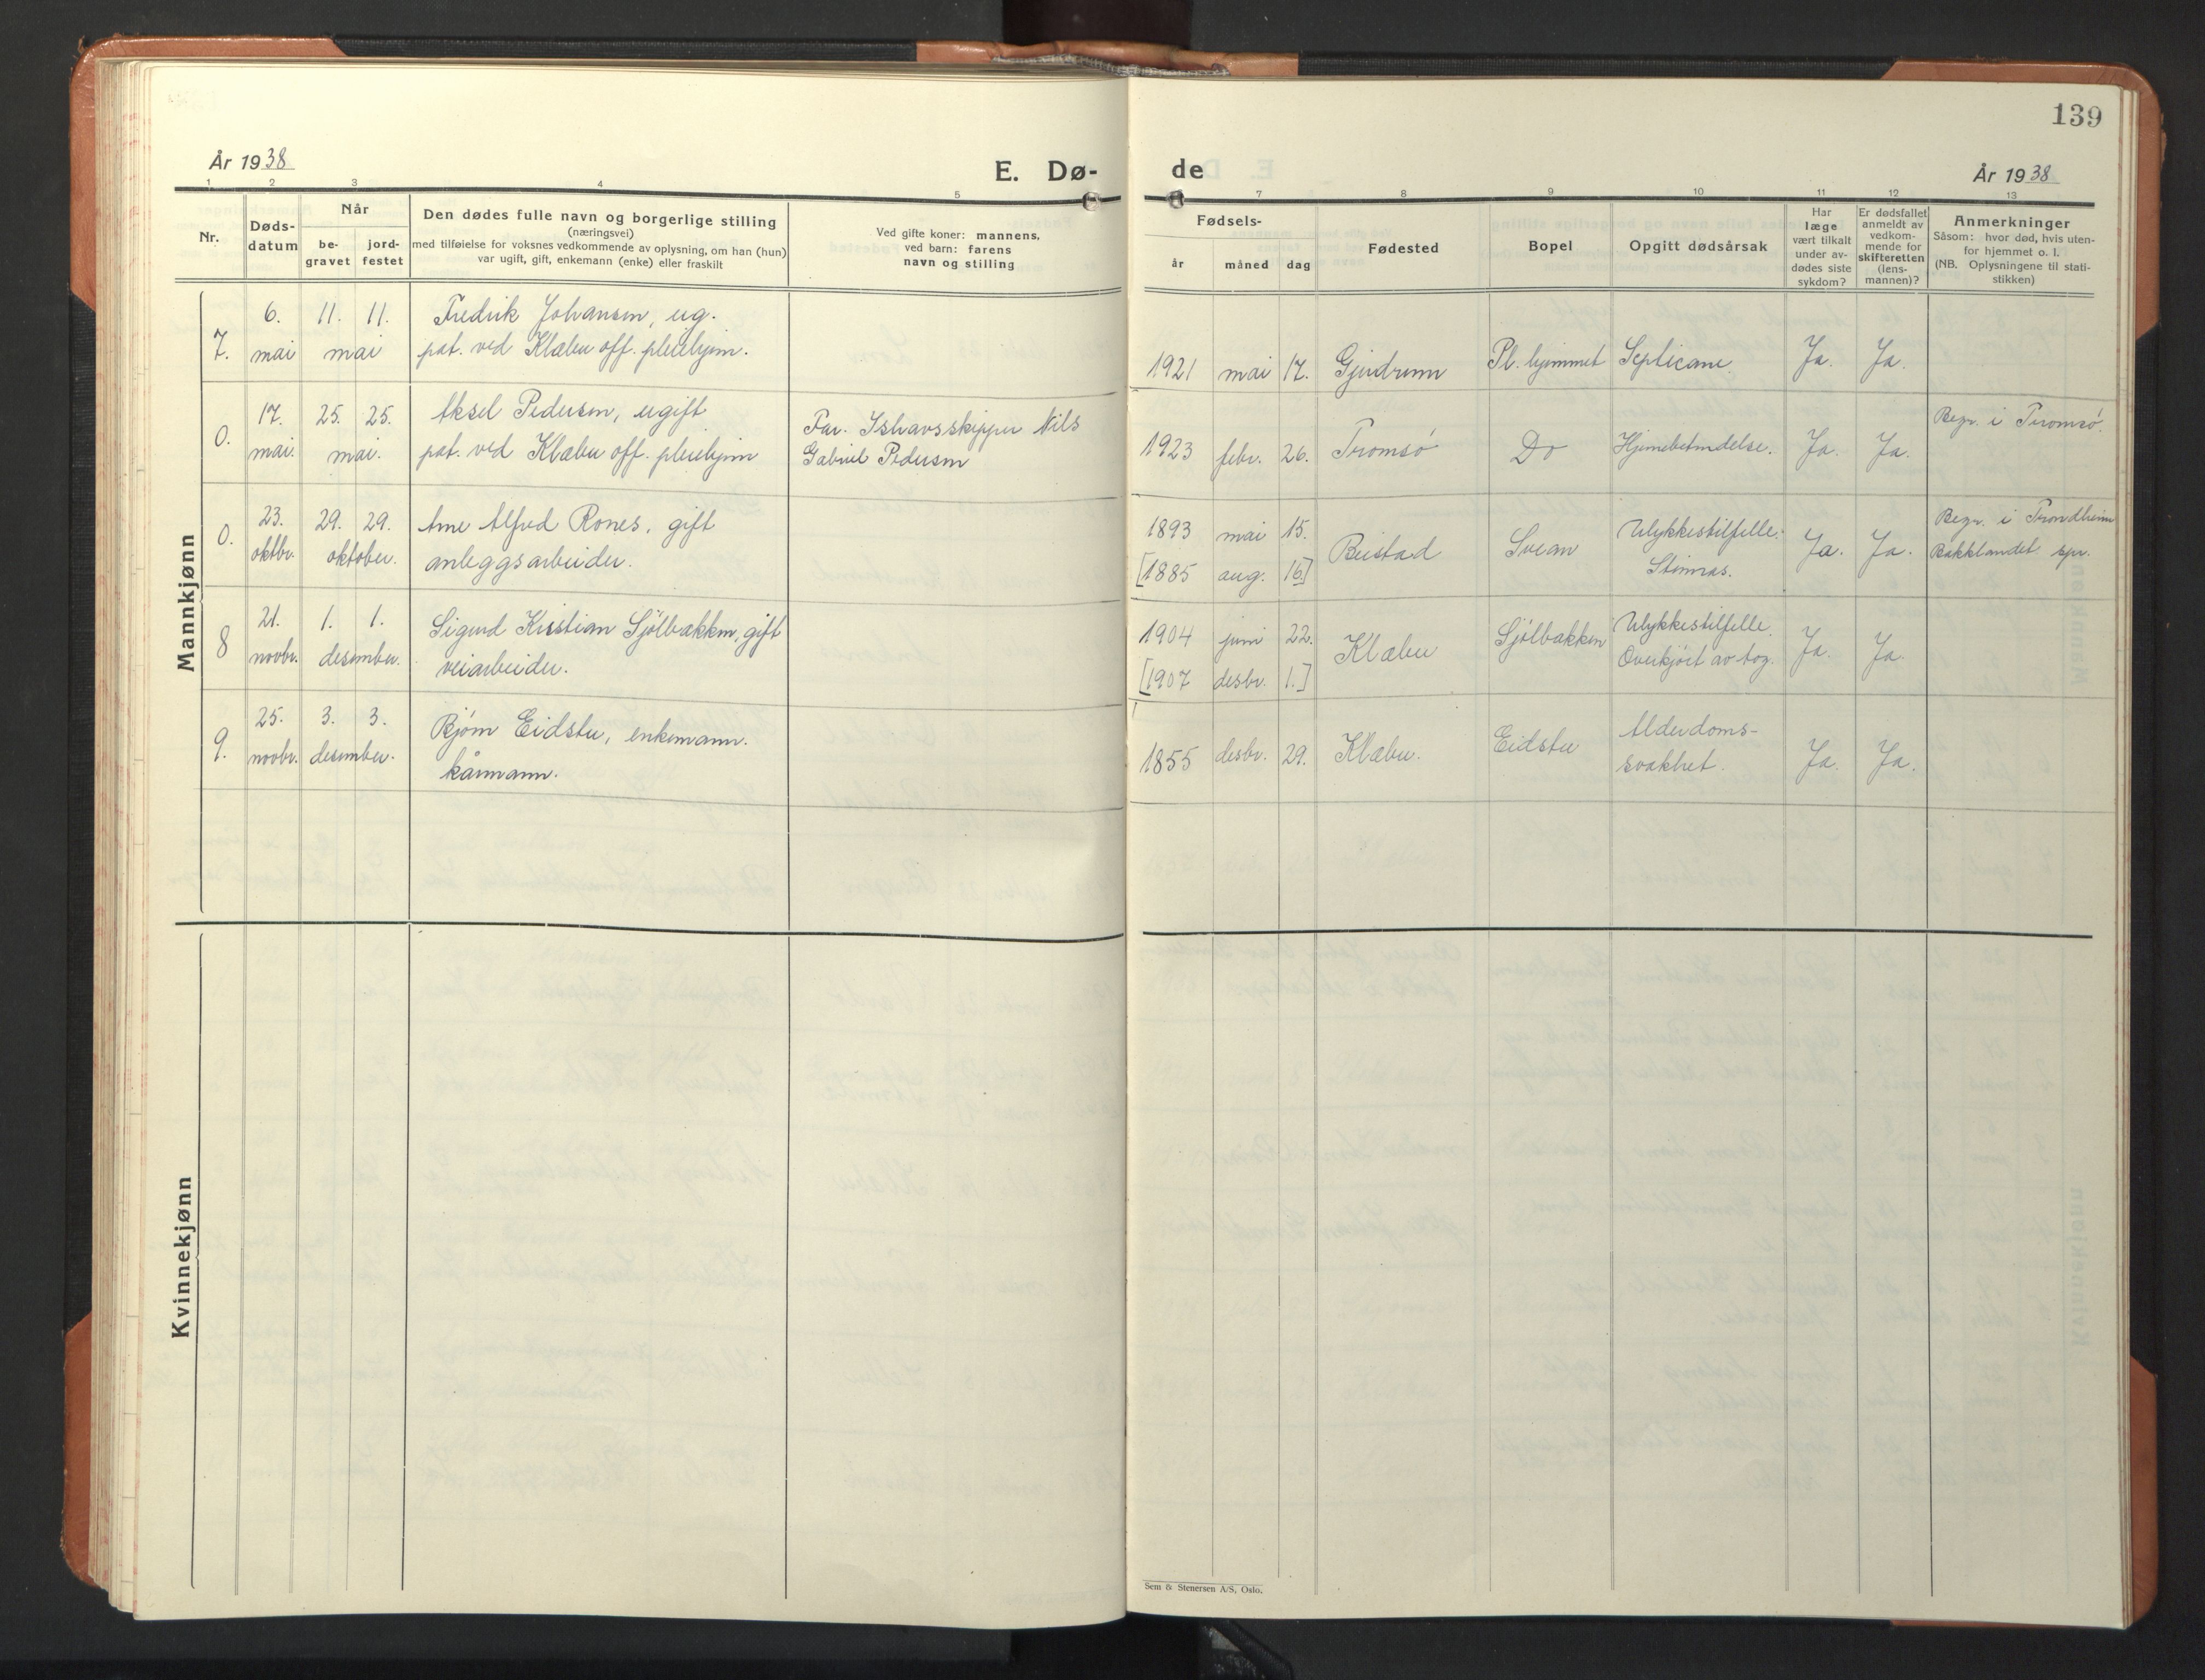 139
År 1938
E. Dø-
de
År 1938
1 2 3 4 5
7 8 9 10 11 12 13
Nr.
Døds-
datum
Når
be-
gravet
jord-
festet
Den dødes fulle navn og borgerlige stilling
(næringsvei)
med tilføielse for voksnes vedkommende av oplysning, om han (hun)
var ugift, gift, enkemann (enke) eller fraskilt
Ved gifte koner: mannens,
ved barn: farens
navn og stilling
Fødsels-
år måned dag
Fødested
Bopel
Opgitt dødsårsak
Har
læge
vært tilkalt
under av-
dødes siste
sykdom?
Er dødsfallet
anmeldt av
vedkom-
mende for
skifteretten
(lens-
mannen)?
Anmerkninger
Såsom: hvor død, hvis uten-
for hjemmet o. l.
(NB. Oplysningene til stati-
stikken)
Mannkjønn
6. 11. 11. Fredrik Johansen, ug.
7. mai mai pat. ved Klæbu off. pleiehjem.
1921 mai 17. Gjerdrum Pl. hjemmet Septicæmi. Ja. Ja.
17. 25. 25. Aksel Pedersen, ugift
0. mai. mai. pat. ved Klæbu off. pleiehjem
Far. Ishavsskipper Nils
Gabriel Pedersen
1923 febr. 26. Tromsø Do Hjernebetendelse. Ja. Ja.
Begr. i Tromsø.
23. 29. 29. Arne Alfred Rones, gift
0. oktbr. oktober. anleggsarbeider.
1893 mai 15.
[1885 aug. 16]
Beistad Svean
Ulykkestilfelle.
Stenras.
Ja. Ja.
Begr. i Trondheim
Bakklandet spr.
21. 1. 1. Sigurd Kristian Sjølbakken, gift
8 novbr. desember. veiarbeider.
1904 juni 22.
[1907 desbr. 1.]
Klæbu Sjølbakken
Ulykkestilfelle.
Overkjørt av tog.
Ja. Ja.
25. 3. 3. Bjørn Eidstu, enkemann.
9. novbr. desember. kårmann.
1855 desbr. 29. Klæbu. Eidstu
Alderdoms-
svakhet.
Ja. Ja.
Kvinnekjønn
Sem & Stenersen A/S, Oslo.